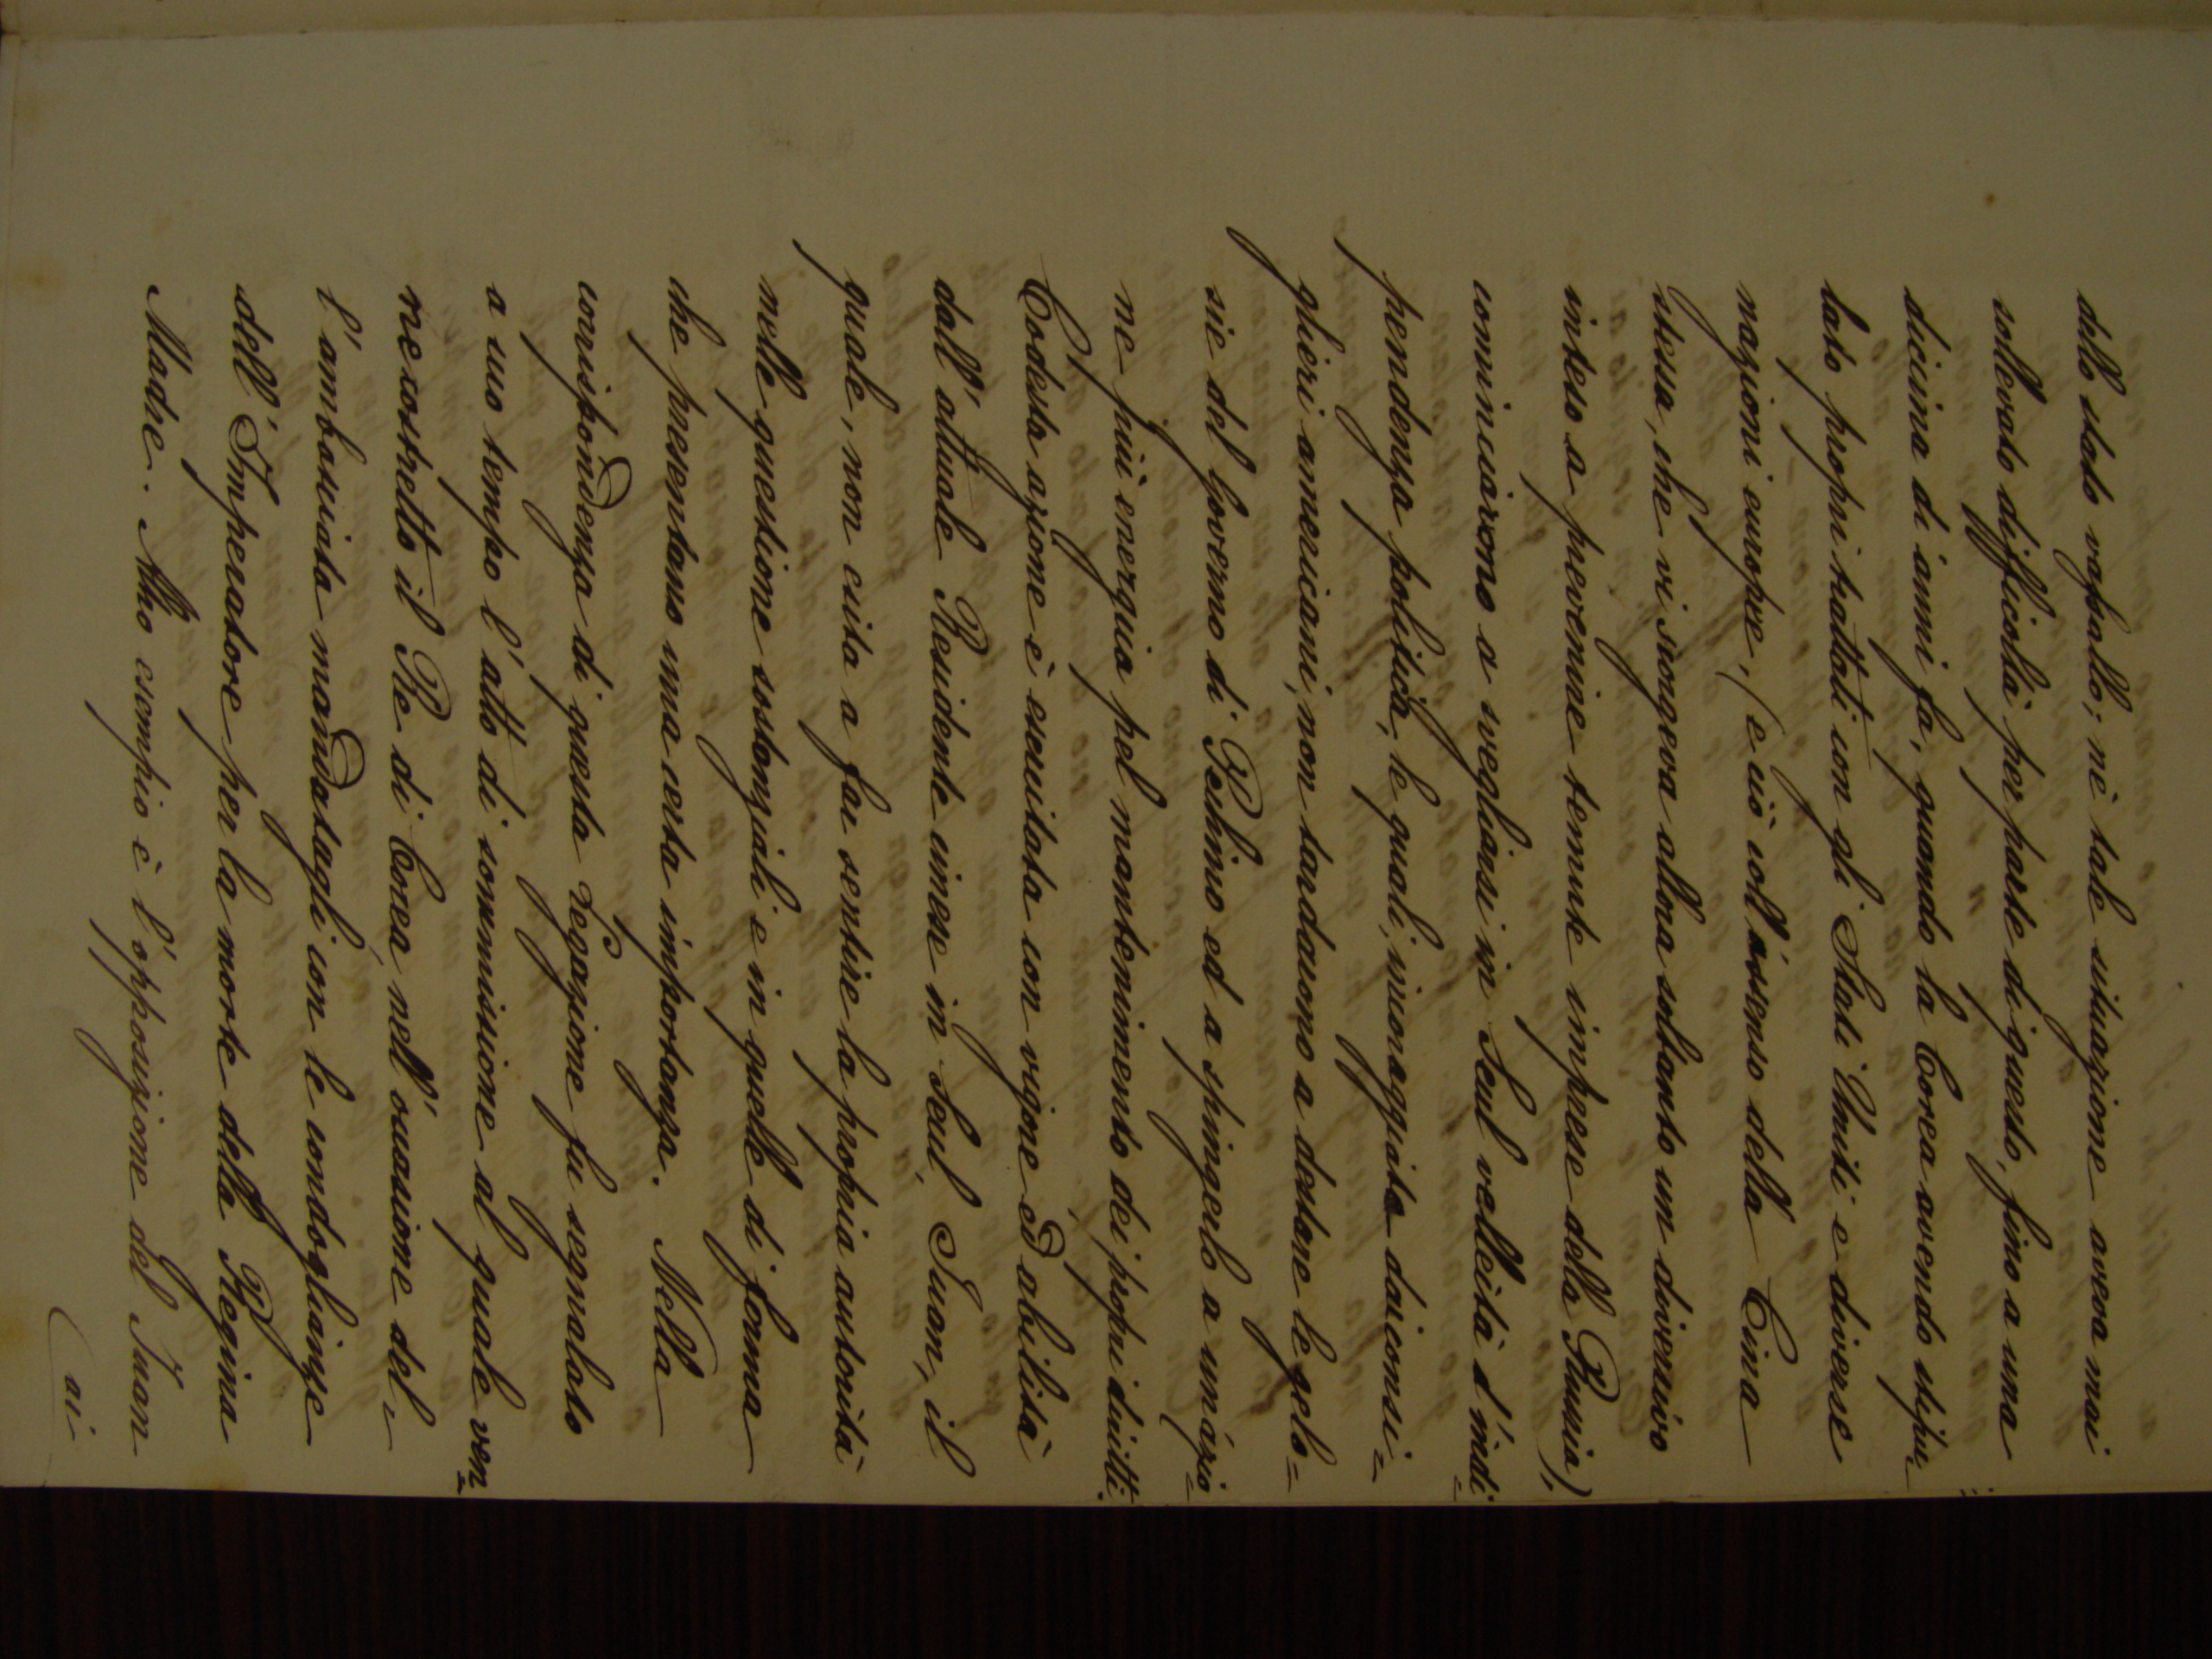 dello stato vassallo; nè tale situazione aveva mai
sollevato difficoltà per parte di questo, fino a una
dicina di anni fa, quando la Corea avendo stipu-
lato propri trattati con gli Stati Uniti e diverse
nazioni europee, (e ciò coll'assenso della Cina
stessa, che vi scorgeva allora soltanto un diversivo
inteso a prevenire temute imprese della Russia),
cominciarono a svegliarsi in Seul velleità d'indi-
pendenza politica, le quali, incoraggiate dai consi=
glieri americani, non tardarono a destare le gelo=
sie del Governo di Pekino ed a spingerlo a un'azio-
ne più energica pel mantenimento dei propri diritti.
Codesta azione è esercitata con vigore ed abilità
dall'attuale Residente cinese in Seul, Iuan, il
quale, non esita a far sentire la propria autorità
nelle questione sostanziali e in quelle di forma
che presentano una certa importanza. Nella
corrispondenza di questa Legazione fu segnalato
a suo tempo l'atto di sommissione al quale ven-
ne costretto il Re di Corea nell'occasione del-
l'ambasciata mandatagli con le condoglianze
dell'Imperatore per la morte della Regina
Madre. Altro esempio è l'opposizione del Iuan
(ai